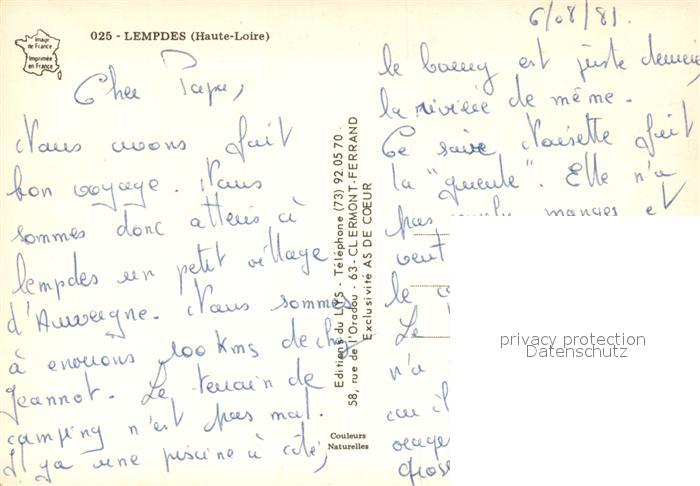 025 - LEMPDES (Haute-Loire)
Image
de France
Imprimée
en France
6/08/81.
Cher Papy,
Nous avons fait
bon voyage. Nous
sommes donc atteris à
lempdes un petit village
d'Auvergne. Nous sommes
à environs 100 Kms de chez
Jeannot. Le terrain de
camping n'est pas mal.
Il y a une piscine à côté,
le bourg est juste derrière
la rivière de même.
Ce soir Noisette fait
la "gueule". Elle n'a
pas voulu manger et
veut
le
Le
n'a
car il
orage
gross
Editions du LYS - Téléphone (73) 92.05.70
58, rue de l'Oradou - 63-CLERMONT-FERRAND
Exclusivité AS DE COEUR
Couleurs
Naturelles
privacy protection
Datenschutz